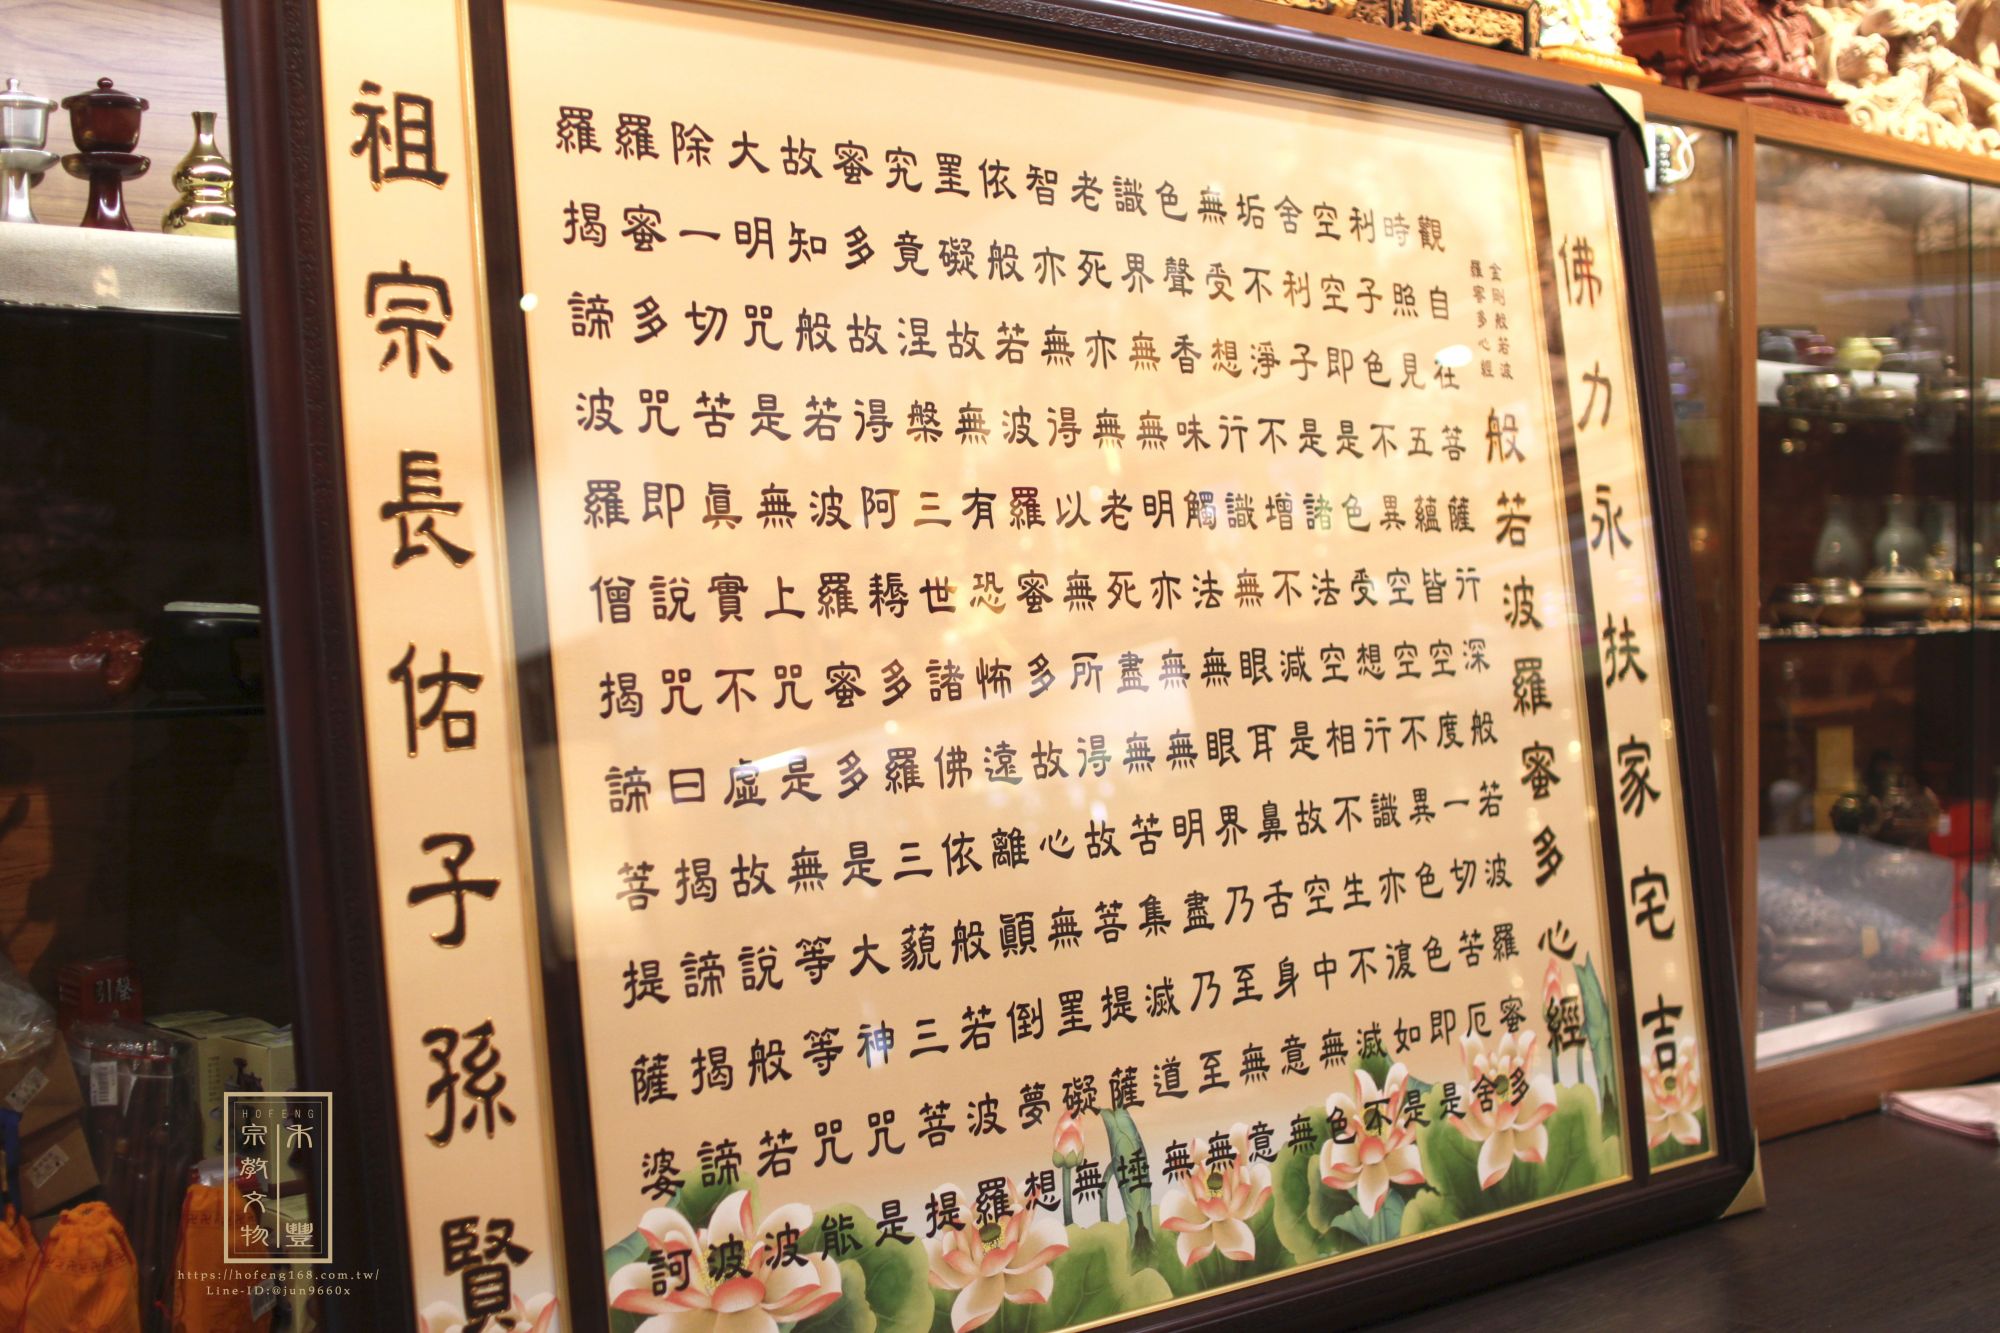 佛力永扶家宅吉
金剛般若波
羅蜜多心經
般若波羅蜜多心經
觀自在菩薩行深般若波羅蜜多
時照見五蘊皆空度一切苦厄舍
利子色不異空空不異色色即是
空空即是色受想行識亦復如是
舍利子是諸法空相不生不滅不
垢不淨不增不減是故空中無色
無受想行識無眼耳鼻舌身意無
色聲香味觸法無眼界乃至無意
識界無無明亦無無明盡乃至無
老死亦無老死盡無苦集滅道無
智亦無得以無所得故菩提薩埵
依般若波羅蜜多故心無罣礙無
罣礙故無有恐怖遠離顛倒夢想
究竟涅槃三世諸佛依般若波羅
蜜多故得阿耨多羅三藐三菩提
故知般若波羅蜜多是大神咒是
大明咒是無上咒是無等等咒能
除一切苦眞實不虛故說般若波
羅蜜多咒即說咒曰揭諦揭諦波
羅揭諦波羅僧揭諦菩提薩婆訶
祖宗長佑子孫賢
引磬
HOFENG
禾豐
宗教文物
https://hofeng168.com.tw/
Line-ID:@jun9660x